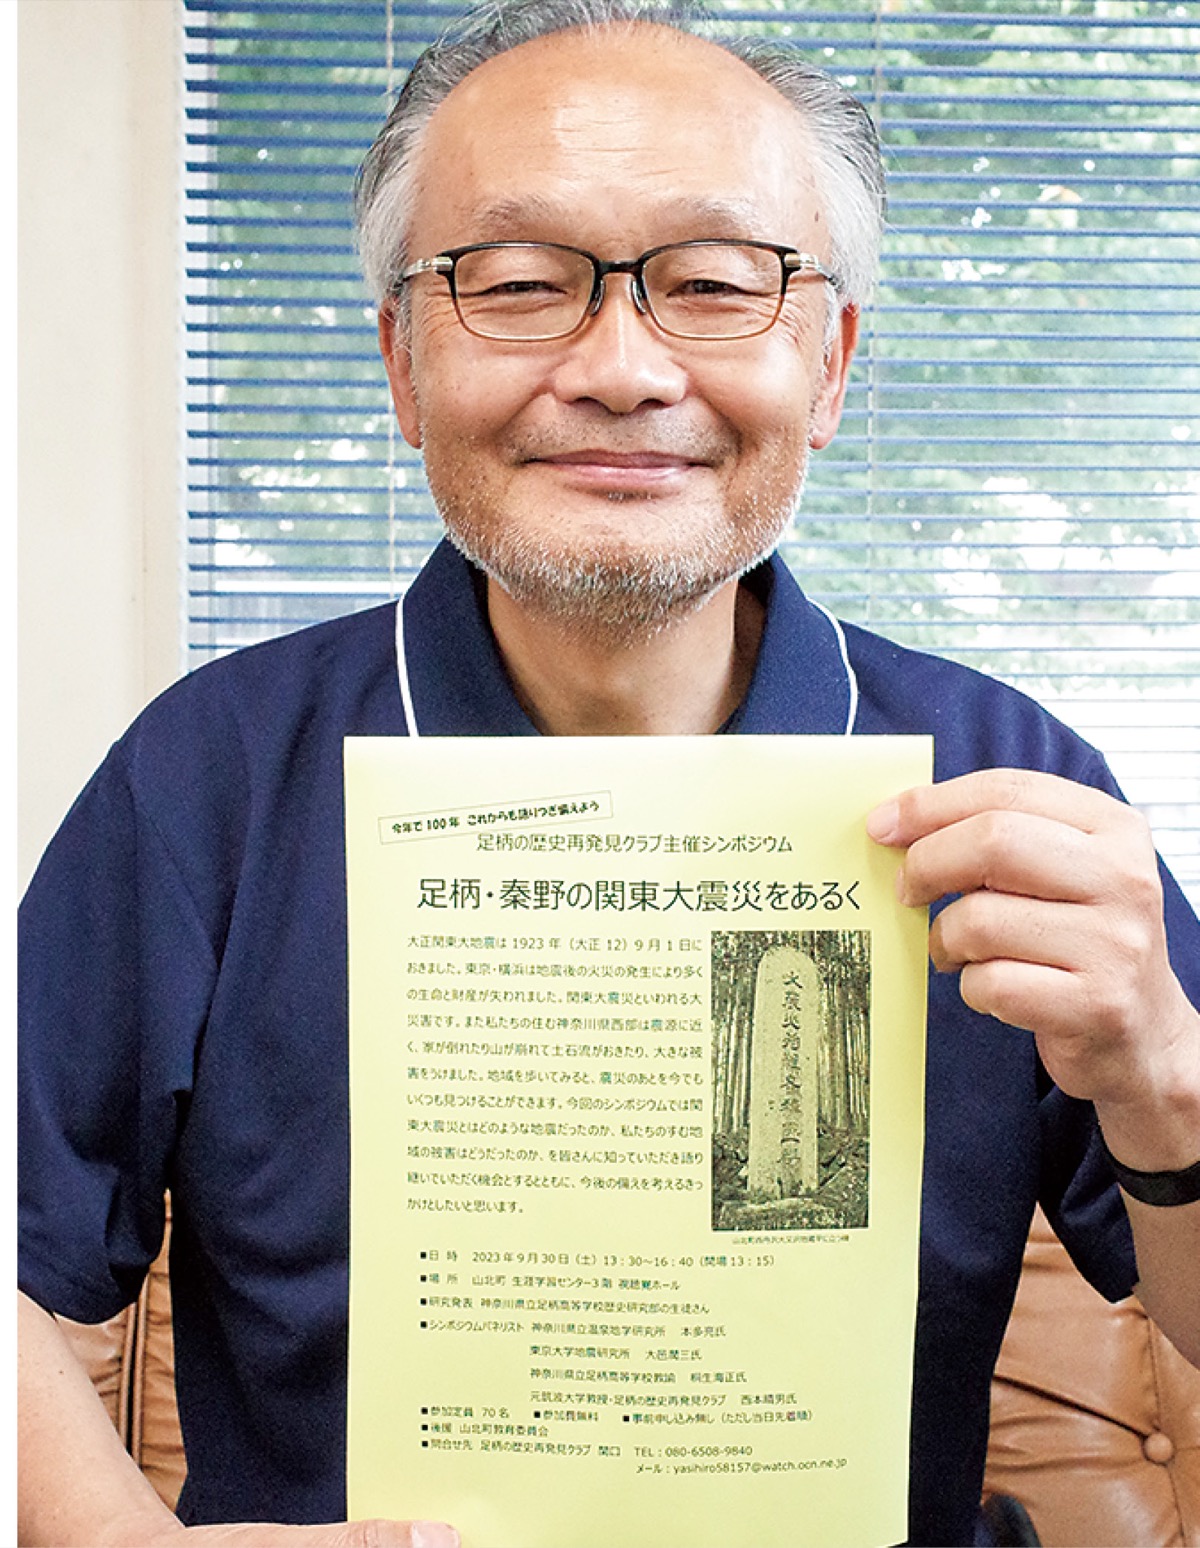 今年で100年 これからも語りつぎ備えよう
足柄の歴史再発見クラブ主催シンポジウム
足柄・秦野の関東大震災をあるく
大正関東大地震は1923年（大正12）9月1日に
おきました。東京・横浜は地震後の火災の発生により多く
の生命と財産が失われました。関東大震災といわれる大
災害です。また私たちの住む神奈川県西部は震源に近
く、家が倒れたり山が崩れて土石流がおきたり、大きな被
害をうけました。地域を歩いてみると、震災のあとを今でも
いくつも見つけることができます。今回のシンポジウムでは関
東大震災とはどのような地震だったのか、私たちのすむ地
域の被害はどうだったのか、を皆さんに知っていただき語り
継いでいただく機会とするとともに、今後の備えを考えるきっ
かけとしたいと思います。
大震災殉難者
■日 時 2023年9月30日（土）13：30～16：40（開場13：15）
■場 所 山北町 生涯学習センター3階 視聴覚ホール
■研究発表 神奈川県立足柄高等学校歴史研究部の生徒さん
■シンポジウムパネリスト 神奈川県立温泉地学研究所 本多亮氏
東京大学地震研究所 大邑潤三氏
神奈川県立足柄高等学校教諭 桐生海正氏
元筑波大学教授・足柄の歴史再発見クラブ 西本晴男氏
■参加定員 70名 ■参加費無料 ■事前申し込み無し（ただし当日先着順）
■後援 山北町教育委員会
■問合せ先 足柄の歴史再発見クラブ 関口 TEL：080-6508-9840
メール：yasihiro58157@watch.ocn.ne.jp